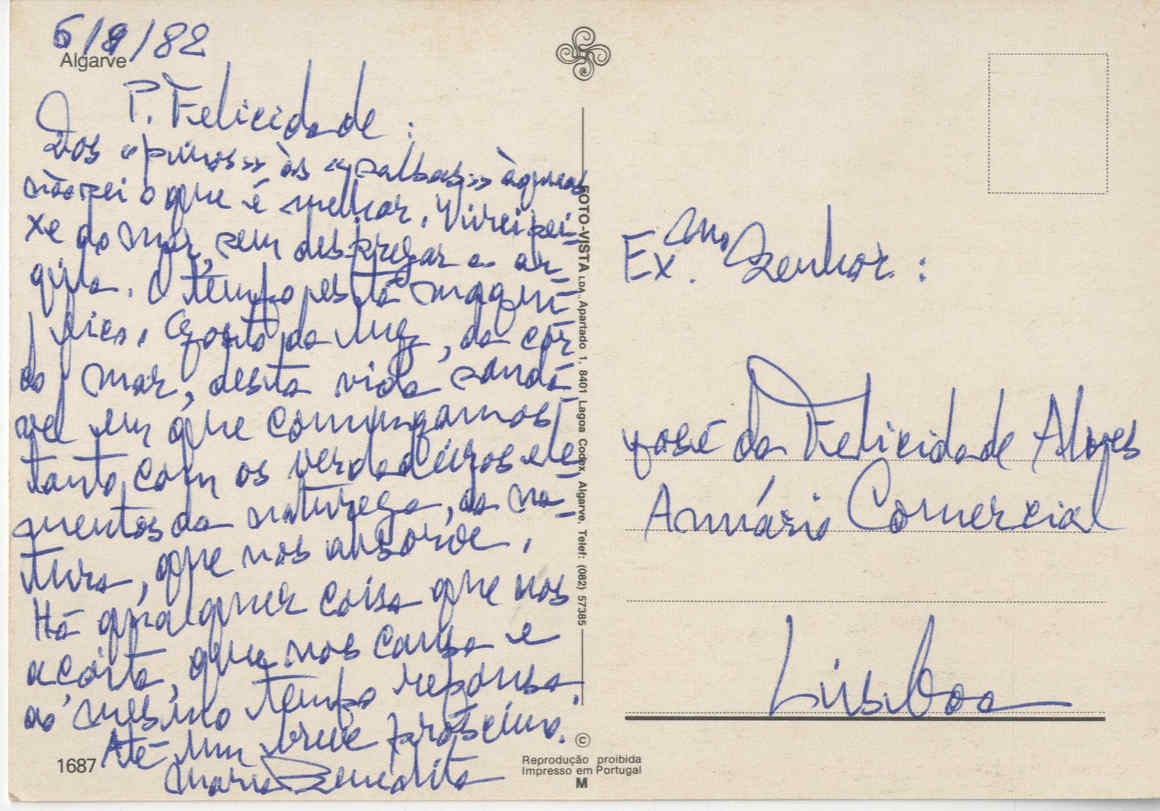 6/9/82
Algarve
P. Felicidade:
Dos «pinos» às «palbas»
não sei o que é melhor. Virei pei-
xe do mar, sem desprezar a ar-
gila. O tempo está magní-
fico. Gosto da luz, da cor
do mar, desta vida saudá
vel em que comungamos
tanto com os verdadeiros ele
mentos da natureza, da na-
tura, que nos absorve.
Há qualquer coisa que nos
açoita, que nos cansa e
ao mesmo tempo repousa.
Até um breve próximo.
Maria Benedita
1687
FOTO-VISTA LDA., Apartado 1, 8401 Lagoa Codex, Algarve, Telef: (082) 57385
©
Reprodução proibida
Impresso em Portugal
M
Ex.mo Senhor:
José da Felicidade Alves
Anuário Comercial
Lisboa